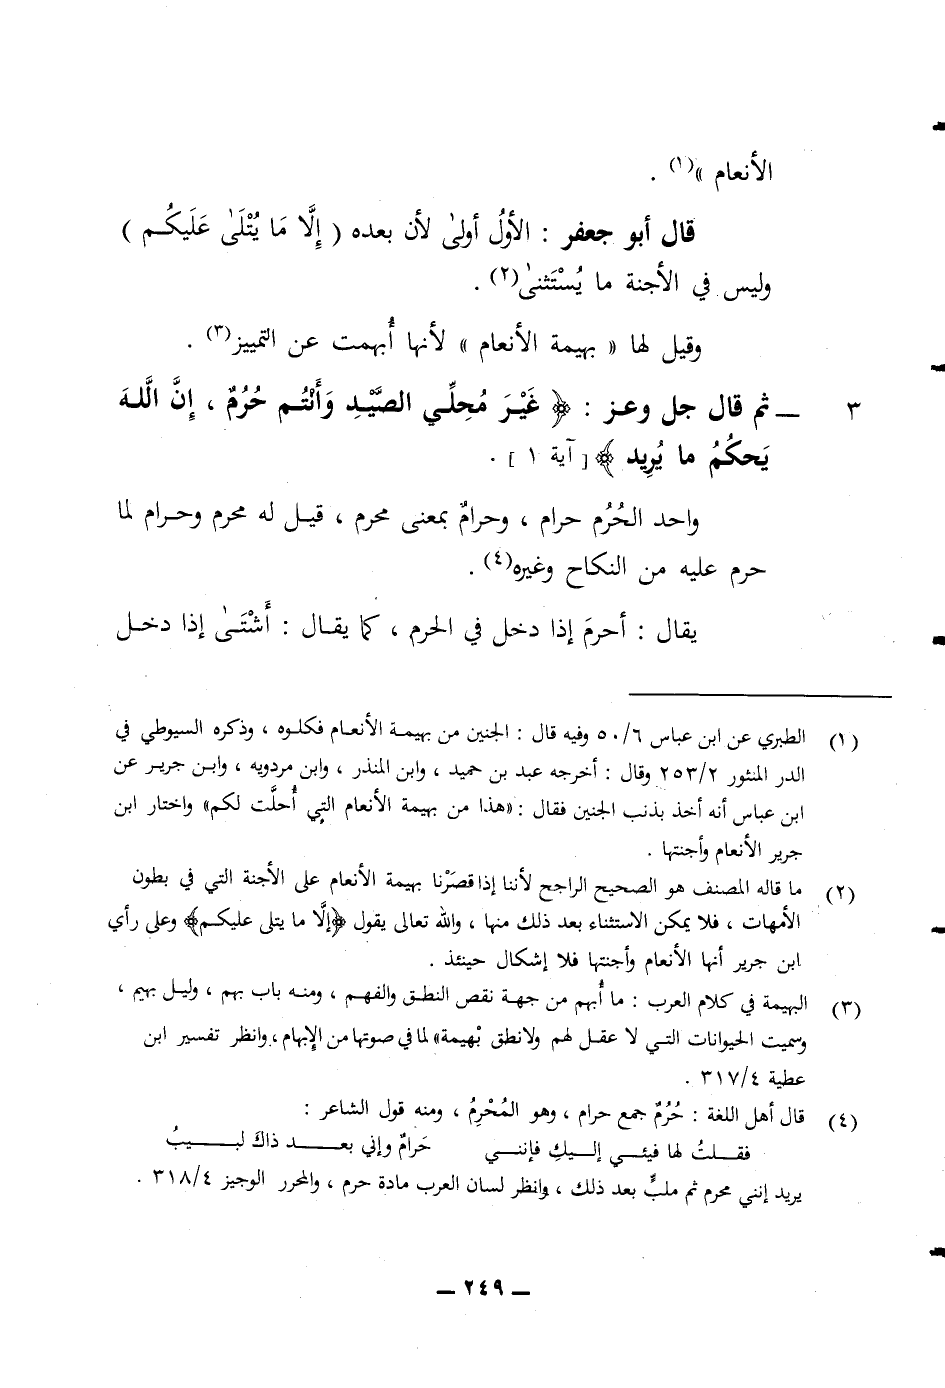 الأنعام »(١) .
قال أبو جعفر : الأولُ أولىٰ لأن بعده ( إِلَّا مَا يُتْلَىٰ عَلَيكُم )
وليس في الأجنة ما يُسْتَثنىٰ(٢) .
وقيل لها « بهيمة الأنعام » لأنها أُبهمت عن التمييز(٣) .
٣ — ثم قال جل وعز : ﴿ غَيْرَ مُحِلِّي الصَّيْدِ وَأَنْتُم حُرُمٌ ، إِنَّ اللَّهَ
يَحكُمُ ما يُرِيد ﴾ [ آية ١ ] .
واحد الحُرُم حرام ، وحرامٌ بمعنى محرم ، قيل له محرم وحرام لما
حرم عليه من النكاح وغيره(٤) .
يقال : أحرمَ إذا دخل في الحرم ، كما يقال : أَشْتَىٰ إذا دخل
(١) الطبري عن ابن عباس ٥٠/٦ وفيه قال : الجنين من بهيمة الأنعام فكلوه ، وذكره السيوطي في
الدر المنثور ٢٥٣/٢ وقال : أخرجه عبد بن حميد ، وابن المنذر ، وابن مردويه ، وابن جرير عن
ابن عباس أنه أخذ بذنب الجنين فقال : «هذا من بهيمة الأنعام التي أُحلَّت لكم» واختار ابن
جرير الأنعام وأجنتها .
(٢) ما قاله المصنف هو الصحيح الراجح لأننا إذا قصَرْنا بهيمة الأنعام على الأجنة التي في بطون
الأمهات ، فلا يمكن الاستثناء بعد ذلك منها ، والله تعالى يقول ﴿إلَّا ما يتلى عليكم﴾ وعلى رأي
ابن جرير أنها الأنعام وأجنتها فلا إشكال حينئذ .
(٣) البهيمة في كلام العرب : ما أُبهم من جهة نقص النطق والفهم ، ومنه باب بهم ، وليل بهيم ،
وسميت الحيوانات التي لا عقل لهم ولانطق بْهيمة» لما في صوتها من الإبهام ، وانظر تفسير ابن
عطية ٣١٧/٤ .
(٤) قال أهل اللغة : حُرُمٌ جمع حرام ، وهو المُحْرِمُ ، ومنه قول الشاعر :
فقلتُ لها فيئي إليكِ فإنني حَرامٌ وإني بعد ذاكَ لبيبُ
يريد إنني محرم ثم ملبٍّ بعد ذلك ، وانظر لسان العرب مادة حرم ، والمحرر الوجيز ٣١٨/٤ .
— ٢٤٩ —